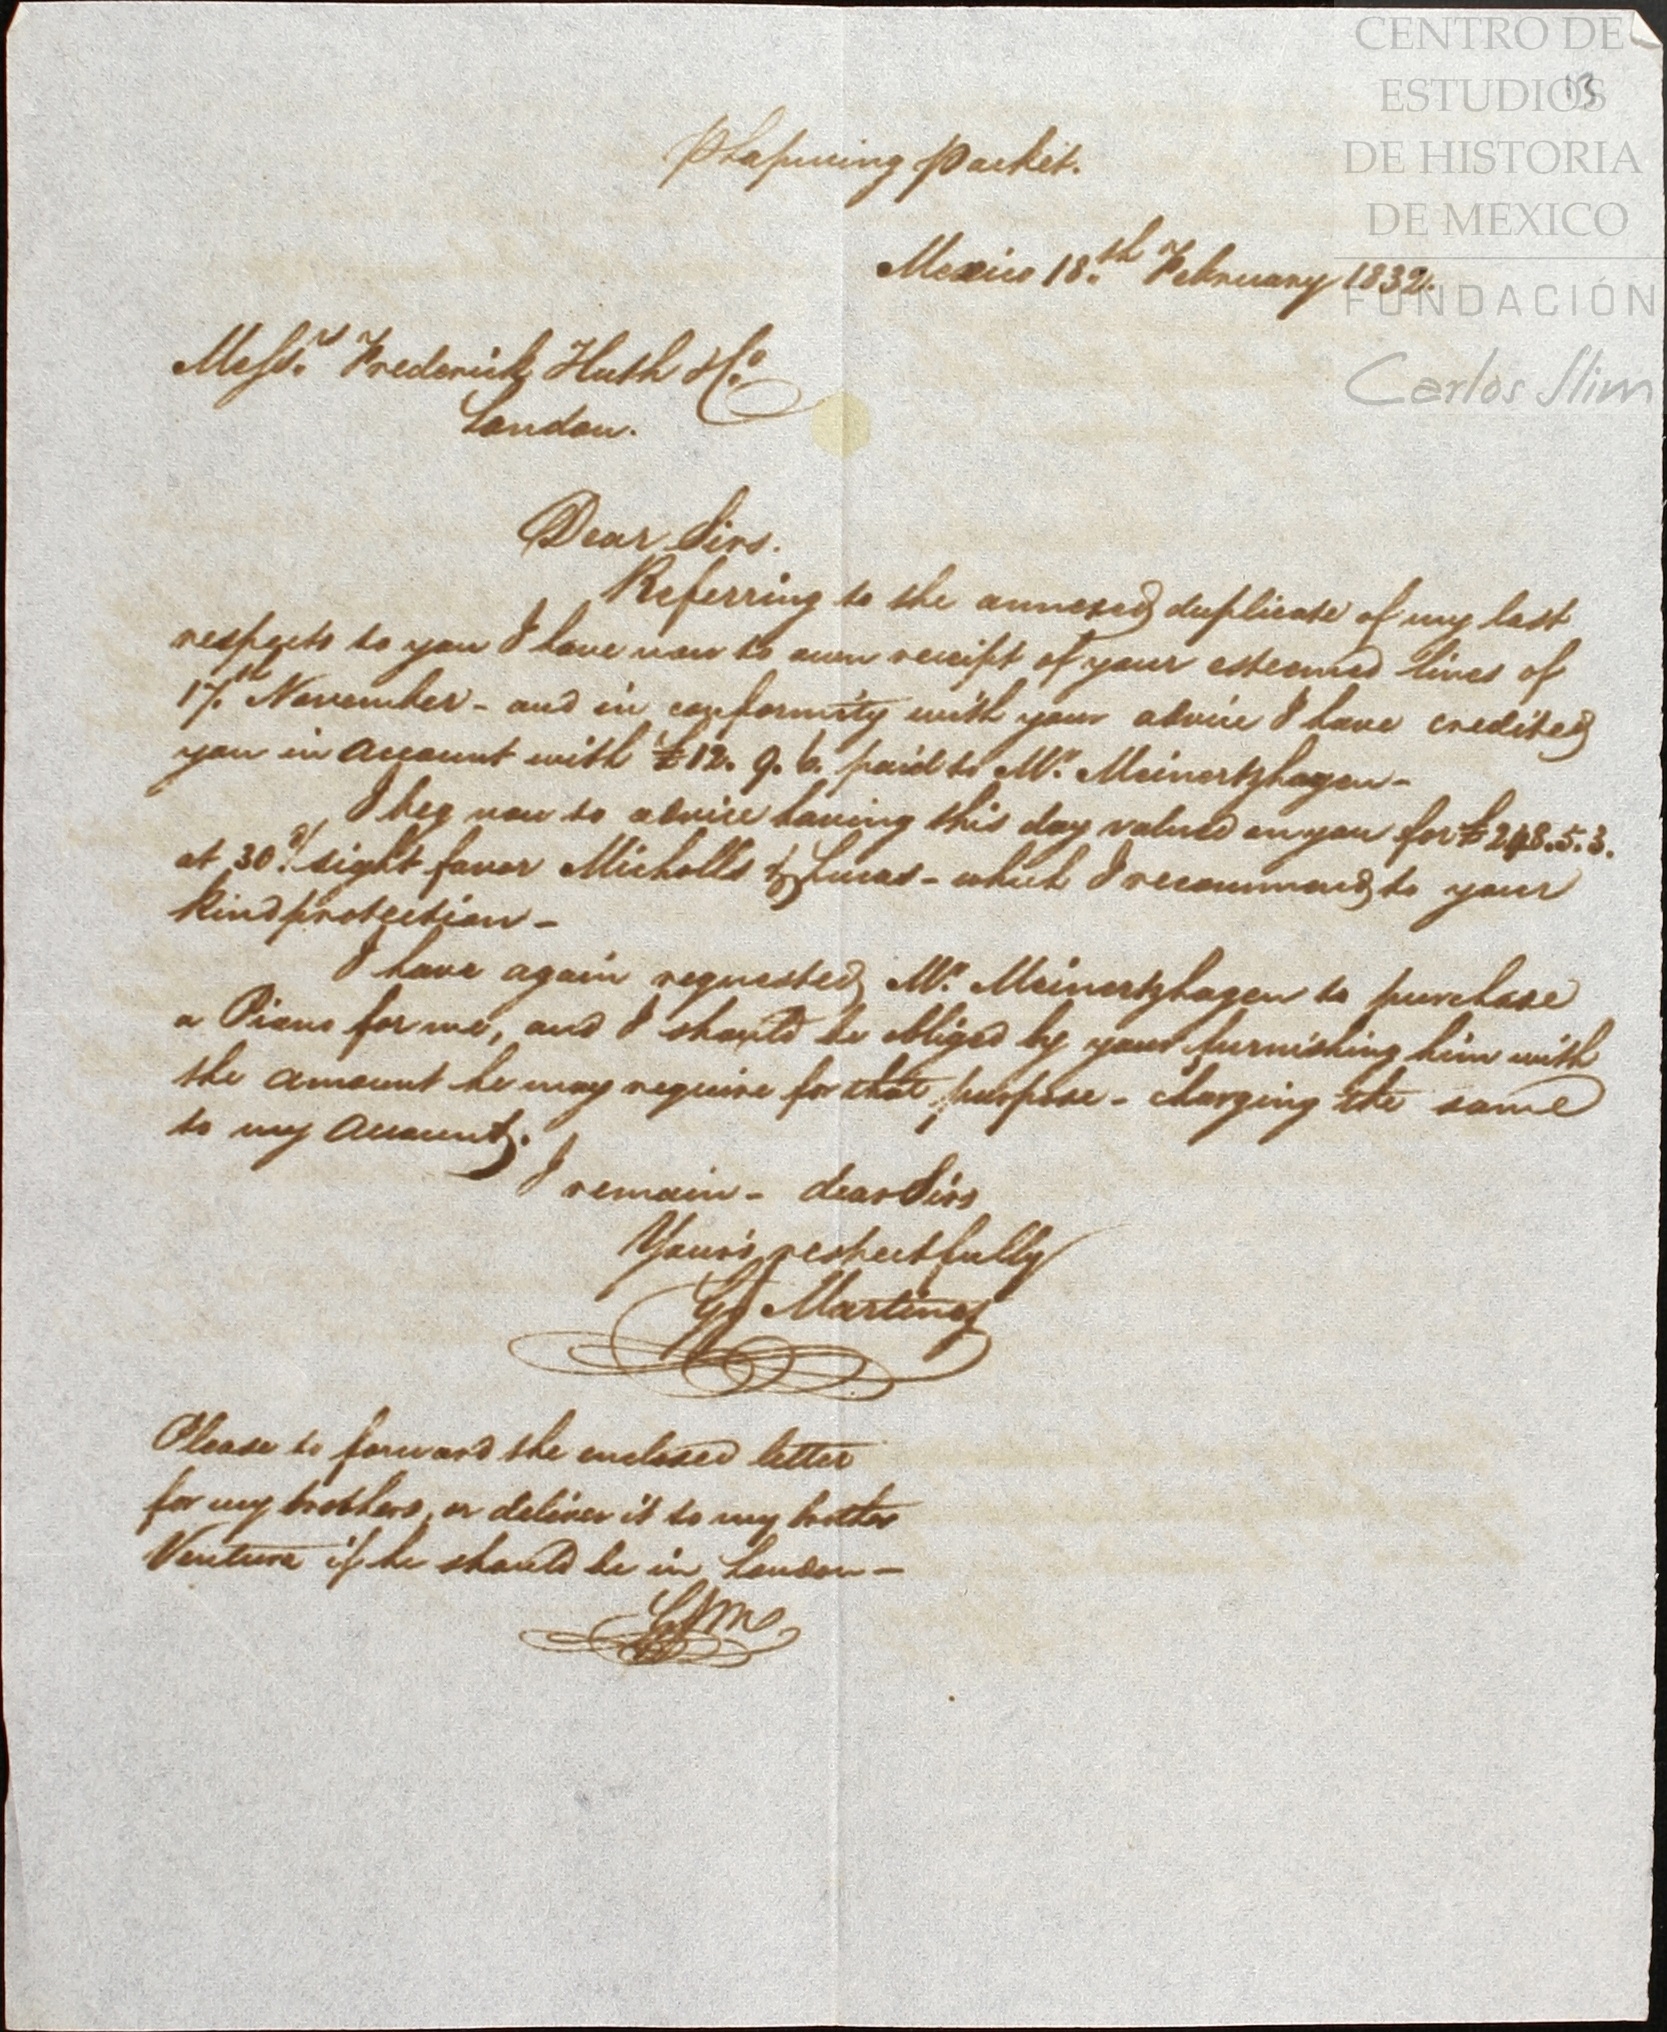 CENTRO DE
ESTUDIOS
DE HISTORIA
DE MEXICO
FUNDACIÓN
Carlos Slim
13
Packet.
Mexico 18.th February 1832.
Messrs. Frederick Huth & Co.
London.
Dear Sirs.
Referring to the annexed duplicate of my last
respects to you I have now to own receipt of your esteemed lines of
17.th November - and in conformity with your advice I have credited
you in account with £12. 9. 6. paid to Mr. Meinertzhagen -
I beg now to advice having this day valued on you for £248.5.3.
at 30 d/ sight favor Micholls & Lucas - which I recommend to your
kind protection -
I have again requested Mr. Meinertzhagen to purchase
a Piano for me, and I should be obliged by your furnishing him with
the amount he may require for that purpose - charging the same
to my account.
I remain - dear Sirs
Your's respectfully
Martinez
Please to forward the enclosed letter
for my brothers, or deliver it to my brother
Ventura if he should be in London -
GJM